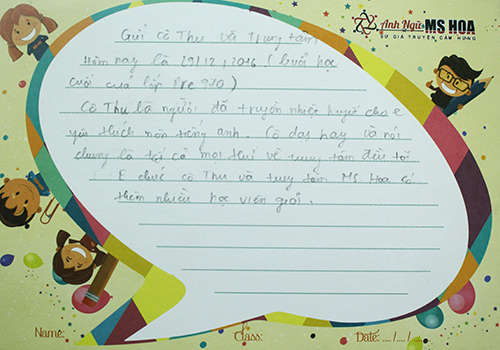 Anh Ngữ MS HOA
SỨ GIẢ TRUYỀN CẢM HỨNG
Gửi cô Thu và trung tâm
Hôm nay là 29/12/2016 (buổi học
cuối của lớp Pre 930)
Cô Thu là người đã truyền nhiệt huyết cho e
yêu thích môn tiếng anh. Cô dạy hay và nói
chung là tất cả mọi thứ về trung tâm đều tốt
E chúc cô Thu và trung tâm Ms Hoa có
thêm nhiều học viên giỏi.
Name: Class: Date: .../.../...